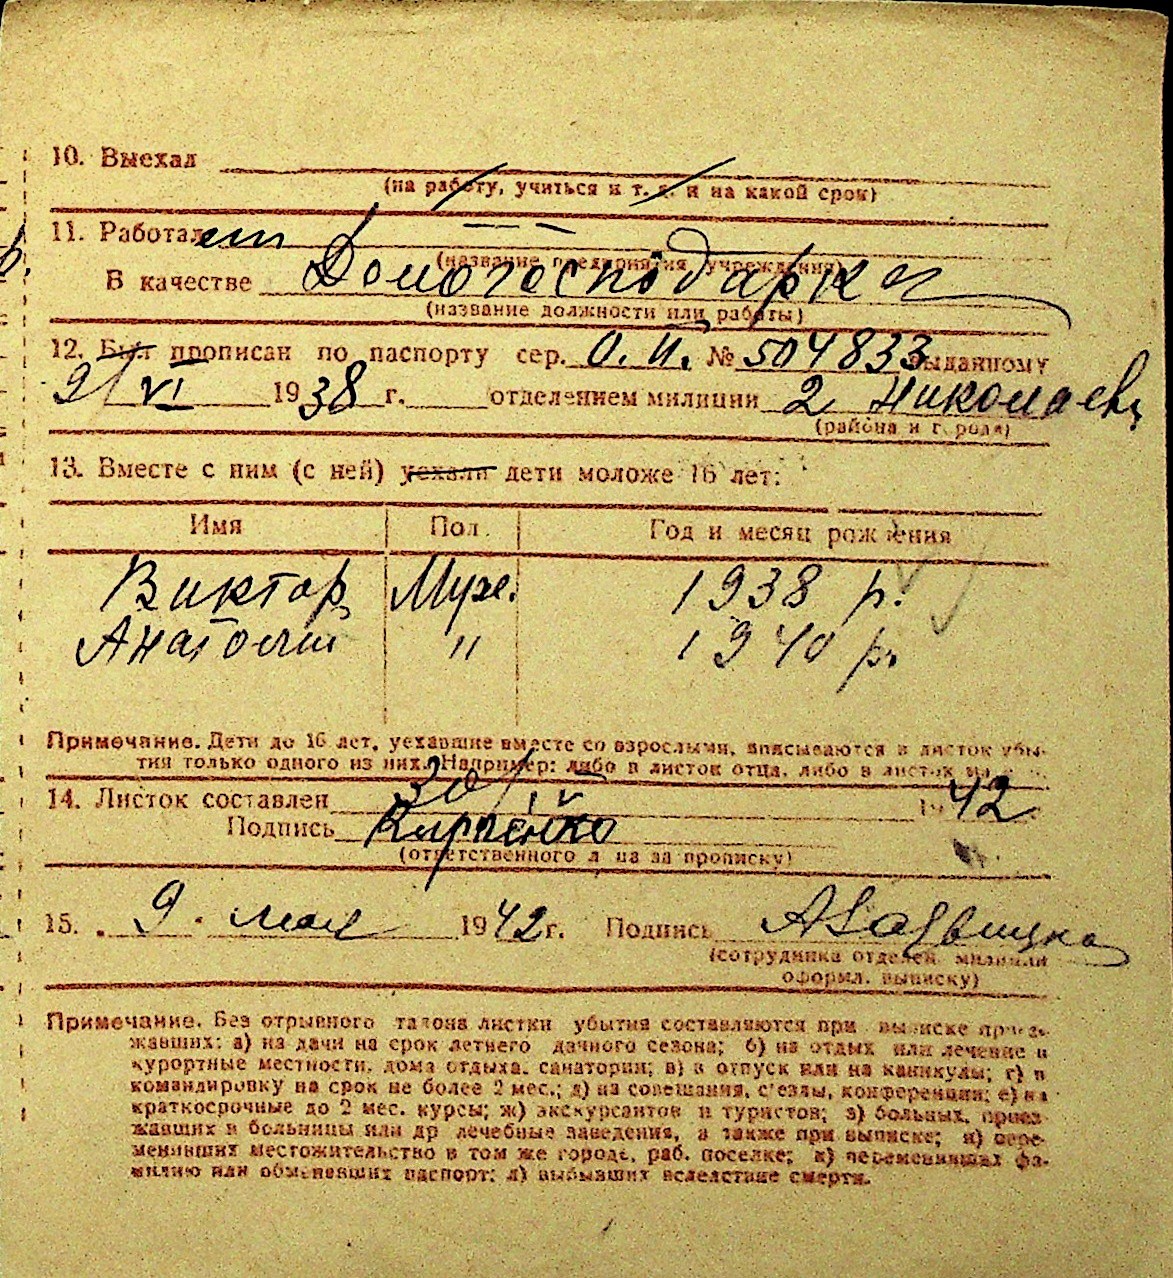 10. Выехал
(на работу, учиться и т. д. и на какой срок)
11. Работает
(название предприятия, учреждения)
В качестве Домогосподарка
(название должности или работы)
12. Был прописан по паспорту сер. О. И. № 504833 выданному
9/VI 1938 г. отделением милиции 2 Николаев
(района и города)
13. Вместе с ним (с ней) уехали дети моложе 16 лет:
Имя Пол Год и месяц рождения
Виктор Муж. 1938 р.
Анатолий " 1940 р.
Примечание. Дети до 16 лет, уехавшие вместе со взрослыми, вписываются в листок убы-
тия только одного из них. Например: либо в листок отца, либо в листок
14. Листок составлен 30/ 1942
Подпись
(ответственного лица за прописку)
15. 9. мая 1942 г. Подпись
(сотрудника отделен. милиции
оформл. выписку)
Примечание. Без отрывного талона листки убытия составляются при выписке приез-
жавших: а) на дачи на срок летнего дачного сезона; б) на отдых или лечение в
курортные местности, дома отдыха, санатории; в) в отпуск или на каникулы; г) в
командировку на срок не более 2 мес.; д) на совещания, с'езды, конференции; е) на
краткосрочные до 2 мес. курсы; ж) экскурсантов и туристов; з) больных, приез-
жавших в больницы или др лечебные заведения, а также при выписке; и) пере-
менивших местожительство в том же городе, раб. поселке; к) переменивших фа-
милию или обменявших паспорт; л) выбывших вследствие смерти.